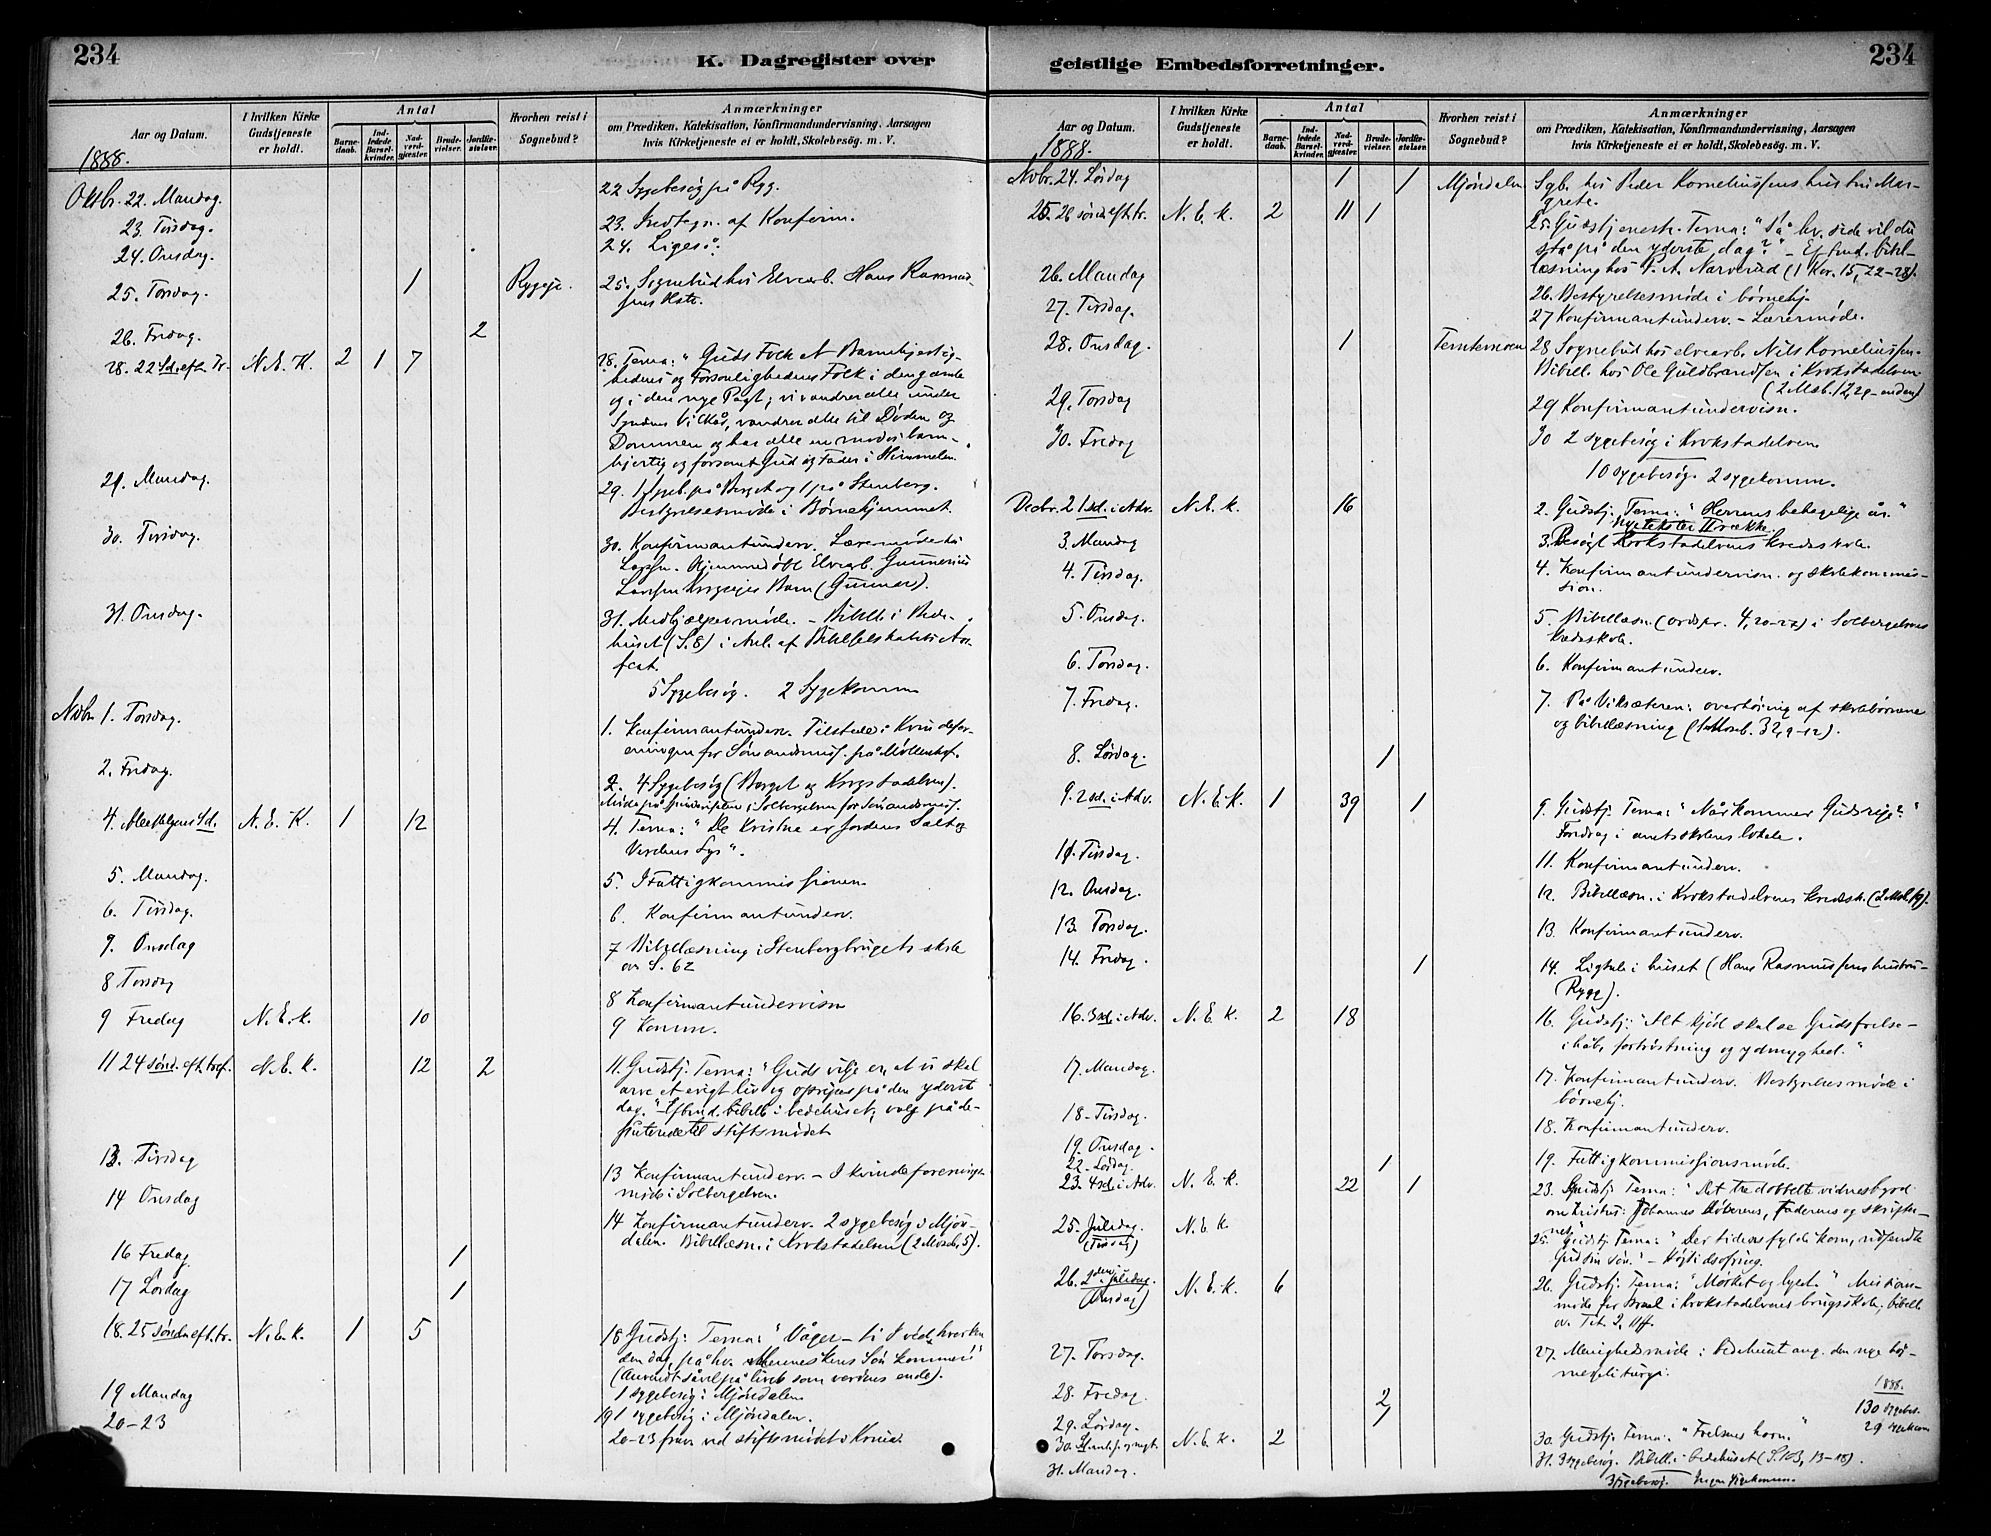 234
K. Dagregister over
Aar og Datum.
I hvilken Kirke Gudstjeneste er holdt.
Antal
Barnedaab.
Indledede Barselkvinder.
Nadverdgjæster.
Brudevielser.
Jordfæstelser.
Hvorhen reist i Sognebud?
Anmærkninger
om Prædiken, Katekisation, Konfirmandundervisning. Aarsagen
hvis Kirketjeneste ei er holdt, Skolebesøg. m. V.
1888.
Oktbr. 22. Mandag. 22 Sygebesøg på Ryg.
23. Tirsdag. 23. Indtegn. af Konfirm.
24. Onsdag. 24. Ligeså.
25. Torsdag. 1 25. Sognebud hos Elvearb. Hans
26. Fredag. 2
28. 22 Sd. eft. Tr. N. E. K. 2 1 7 28. Tema: "Guds Folk et Barmhjertig-
hedens og Forsonlighedens Folk i den gamle
og i den nye Pagt; vi vandrer alle under
Syndens Vilkår, vandrer alle til Døden og
Dommen og har alle en mod os barm-
hjertig og forsonet Gud og Fader i Himmelen.
29. Mandag. 29. 1 Sygeb. på Berget og 1 på Stenberg.
Bestyrelsesmøde i Børnehjemmet.
30. Tirsdag. 30. Konfirmantunderv. Læremøde hos
Hjemmedøbt Elvearb. Gunnerius
Barn (Gunnar).
31. Onsdag. 31. Medhjælpermøde. - Bibell. i Bede-
huset (S. 8) i Anl. af Bibelselskabets Års-
fest.
5 Sygebesøg. 2 Sygekomm
Novbr 1. Torsdag. 1. Konfirmantunderv. Tilstede i Kvindefor-
eningen for Sømandsmis. på Møllenhof.
2. Fredag. 2. 4 Sygebesøg (Berget og Krogstadelven).
4. Allehelgens Sd. N. E. K. 1 12 4. Tema: "De Kristne er Jordens Salt og
Verdens Lys".
5. Mandag. 5. I Fattigkommissionen.
6. Tirsdag. 6. Konfirmantunderv.
9. Onsdag 7 Bibellæsning i Stenbergbrugets skole
ov. S. 62
8 Torsdag 8 Konfirmantundervisn
9 Fredag N. E. k. 10 9 Komm.
11 24 sønd. eft. tref. N. E. K. 12 2 11. Gudstj. Tema: "Guds vilje er, at vi skal
arve et evigt liv og opreises på den yderste
dag." - Eftmd. bibell. i bedehuset; valg på de-
puterede til stiftsmødet
13. Tirsdag 13 Konfirmantunderv. - I kvindeforenings-
møde i Solbergelven.
14 Onsdag 14 Konfirmantunderv. 2 sygebesøg i Mjøn-
dalen. Bibellæsn. i Krokstadelven (2 Moseb. 5).
16 Fredag 1
17 Lørdag 1
18. 25 sønd. eft. tr. N. E. k. 1 5 18 Gudstj. Tema: "Våger - ti I véd hverken
den dag, på hv. Menneskens Søn kommer!"
(Anvendt såvel på livets som verdens ende).
1 sygebesøg i Mjøndalen
19 Mandag 19 1 sygebesøg i Mjøndalen.
20-23 20-23 frav. ved stiftsmødet i Kristia.
234
geistlige Embedsforretninger.
Aar og Datum.
I hvilken Kirke Gudstjeneste er holdt.
Antal
Barnedaab.
Indledede Barselkvinder.
Nadverdgjæster.
Brudevielser.
Jordfæstelser.
Hvorhen reist i Sognebud?
Anmærkninger
om Prædiken, Katekisation, Konfirmandundervisning, Aarsagen
hvis Kirketjeneste ei er holdt, Skolebesøg. m. V.
1888.
Novbr. 24. Lørdag 1 1 Mjøndalen Sgb. hos Peder Korneliussens hustru Mar-
grete.
25. 26 sønd. eft. tr. N. E. k. 2 11 1 25. Gudstjeneste. Tema: "På hv. side vil du
stå på den yderste dag?" - Eftmd. bibel-
læsning hos Narverud (1 Kor. 15, 22-28).
26. Mandag 26. Bestyrelsesmøde i børnehj.
27. Tirsdag. 27 Konfirmantunderv. - Lærermøde.
28. Onsdag. 1 28 Sognebud hos elvearb. Nils Korneliussen.
Bibell. hos Ole Guldbrandsen i Krokstadelven
29. Torsdag 29 Konfirmantundervisn.
30. Fredag 30 2 sygebesøg i Krokstadelven
10 sygebesøg. 2 sygekomm.
Decbr. 2 1 sd. i Adv. N. E. k. 16 2. Gudstj. Tema: "Herrens behagelige år."
nye tekster II række.
3. Mandag 3. Besøgt Krokstadelvens kredsskole.
4. Tirsdag. 4. Konfirmantundervisn. og skolekommis-
sion.
5. Onsdag. 5. Bibellæsn. (ordspr. 4, 20-27) i Solbergelvens
kredsskole.
6. Torsdag. 6. Konfirmantunderv.
7. Fredag. 7. På Viksæteren: overhøring af skolebørnene
og bibellæsning (1 Moseb. 32, 9-12).
8. Lørdag. 1
9. 2 sd. i Adv. N. E. K. 1 39 1 9. Gudstj. Tema: "Når kommer Guds rige?"
Foredrag i amtsskolens lokale.
11. Tirsdag. 11. Konfirmantunderv.
12. Onsdag. 12. Bibellæsn. i Krokstadelvens kredssk. (2 Mos. 19).
13. Torsdag. 13. Konfirmantunderv.
14. Fredag. 1 14. Ligtale i huset (Hans Rasmussens hustru -
Rygg).
16. 3 sd. i Adv. N. E. k. 2 18 16. Gudstj: "Alt kjød skal se Guds frelse -
i håb, fortrøstning og ydmyghed."
17. Mandag 17. Konfirmantunderv. Bestyrelsesmøde i
børnehj.
18. Tirsdag. 18. Konfirmantunderv.
19. Onsdag. 19. Fattigkommissionsmøde.
22. Lørdag. 1
23. 4 sd. i Adv. N. E. K. 22 1 23. Gudstj. Tema: "Det tredobbelte vidnesbyrd
om kristus: Johannes Døberens, Faderens og skrifte-
nes."
25. Juledag. (Tirsdag) N. E. K. 25. Gudstj. Tema: "Der tidens fylde kom, udsendte
Gud sin søn." - Høitidsofring.
26. 2den juledag. (Onsdag) N. E. k. 6 26. Gudstj. Tema: "Mørket og lyset." Missions-
møde for Israel i Krokstadelvens brugsskole; bibell.
ov. Tit. 2, 11ff.
27. Torsdag. 27. Menighedsmøde i bedehuset ang. den nye høi-
messeliturgi.
28. Fredag. 2
1888.
130 sygebes.
29 sygekom
29. Lørdag.
30. N. E. K. 2 30. Gudstj. Tema: "Frelsens horn."
31. Mandag. 31. 3 sygebesøg. Bibell. i bedehuset (S. 103, 13-18).
3 sygebesøg. Ingen sygekomm.